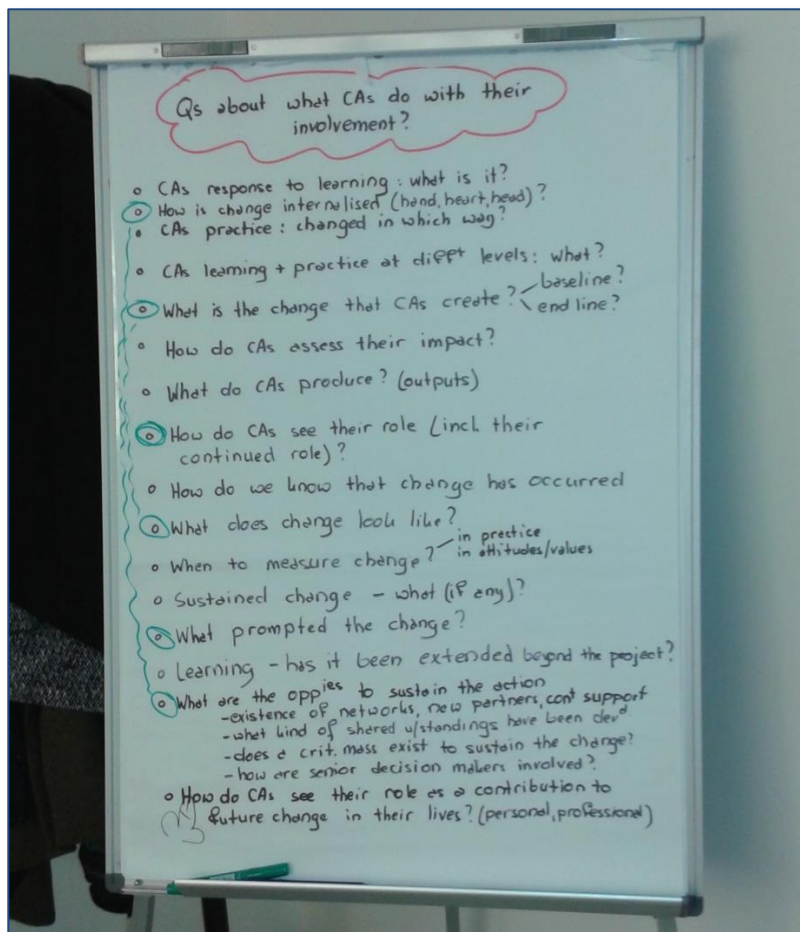 Qs about what CAs do with their
involvement?
CAs response to learning : what is it?
How is change internalised (hand, heart, head)?
CAs practice : changed in which way?
CAs learning + practice at difft levels: what?
What is the change that CAs create? baseline?
end line?
How do CAs assess their impact?
What do CAs produce? (outputs)
How do CAs see their role (incl. their
continued role)?
How do we know that change has occurred
What does change look like?
When to measure change? in practice
in attitudes/values
Sustained change - what (if any)?
What prompted the change?
Learning - has it been extended beyond the project?
What are the oppies to sustain the action
-existence of networks, new partners, cont support
-what kind of shared u/standings have been devd
-does a crit. mass exist to sustain the change?
-how are senior decision makers involved?
How do CAs see their role as a contribution to
future change in their lives? (personal, professional)